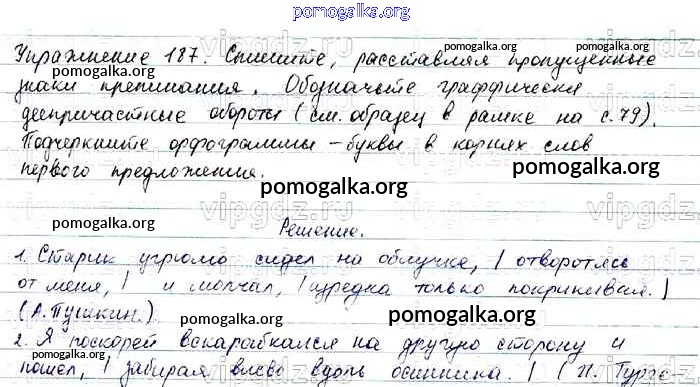 pomogalka.org
Упражнение 187. Спишите, расставляя пропущенные
pomogalka.org pomogalka.org
знаки препинания. Обозначьте графически
деепричастные обороты (см. образец в рамке на с. 79).
Подчеркните орфограммы – буквы в корнях слов
первого предложения.
pomogalka.org pomogalka.org
vipgdz.ru
pomogalka.org Решение. pomogalka.org
1. Старик угрюмо сидел на облучке, | отворотясь
от меня, | и молчал, | изредка только покрикивая. |
(А. Пушкин.) pomogalka.org
2. Я поскорей вскарабкался на другую сторону и
пошел, | забирая влево вдоль осинника. | (И. Турге-
pomogalka.org